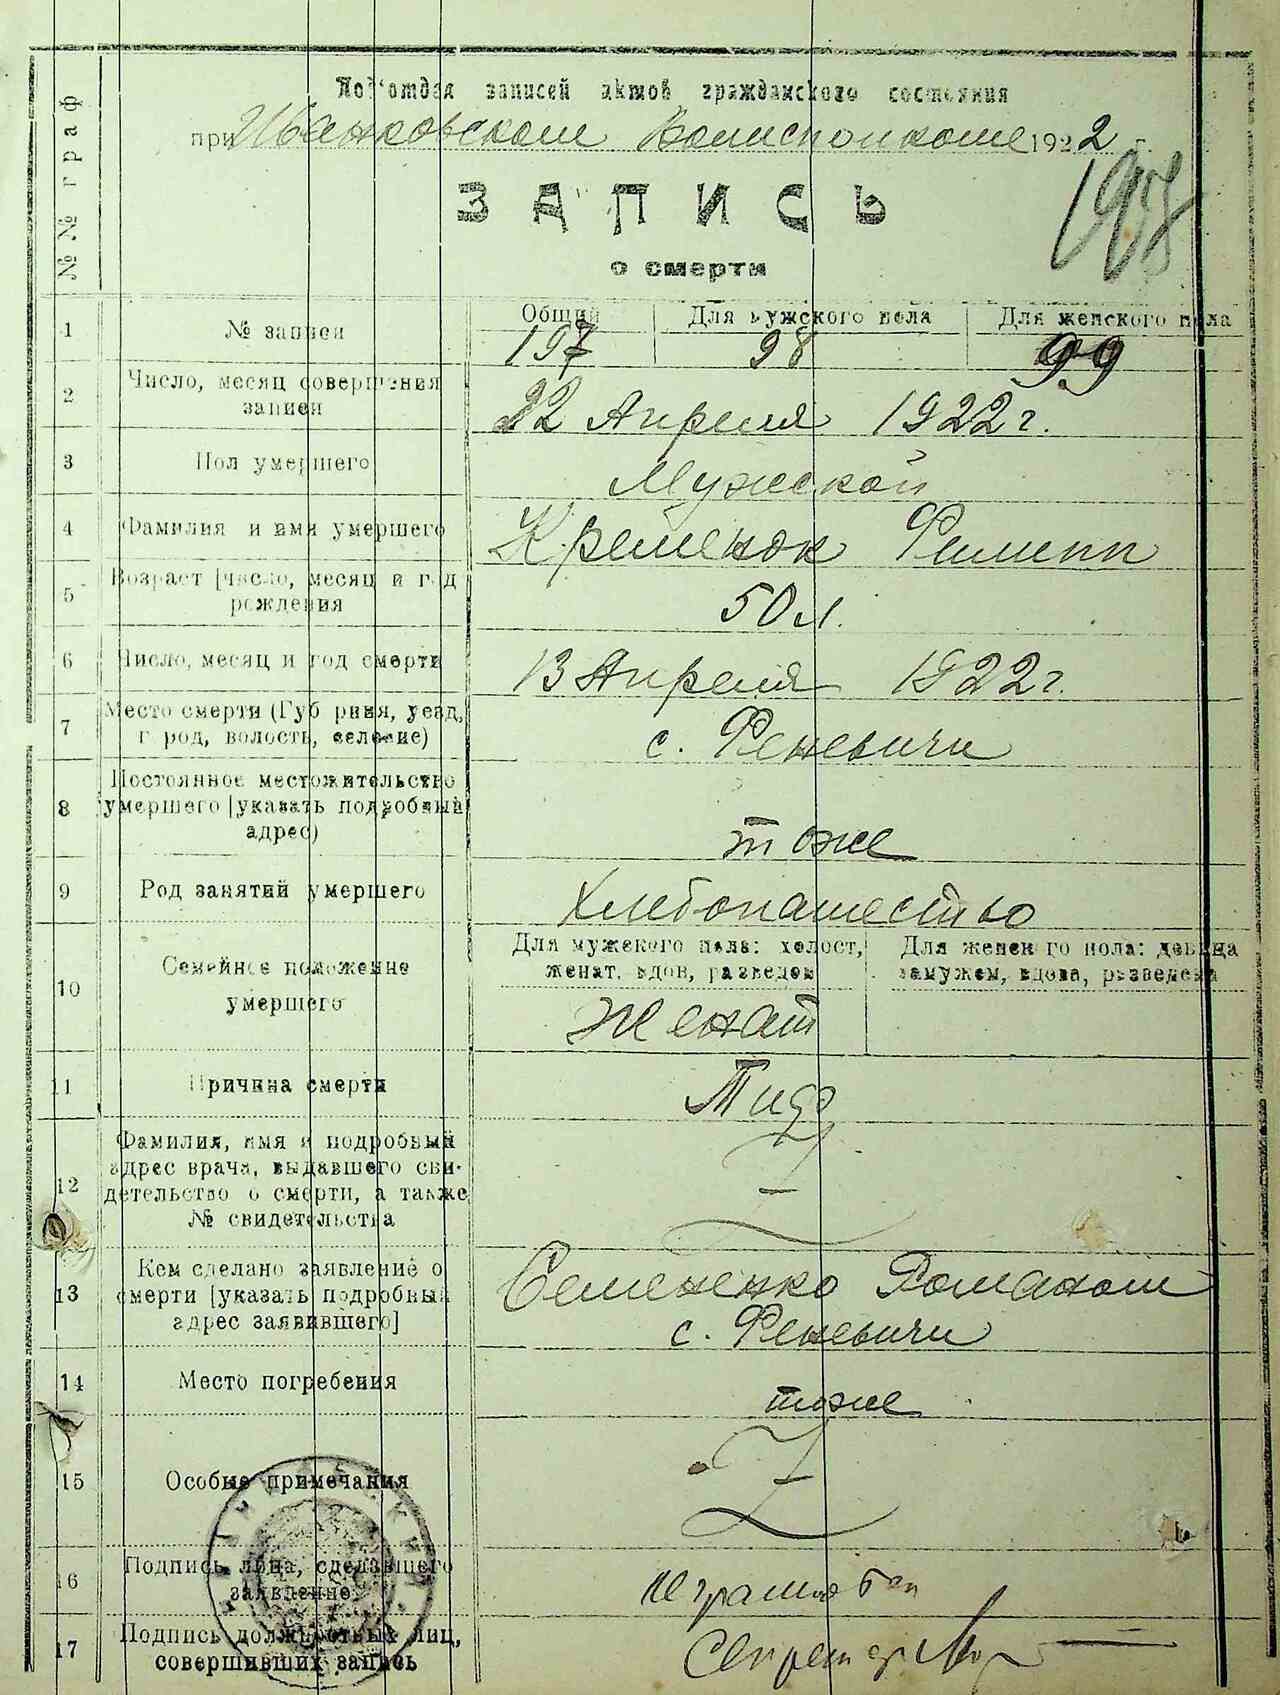 №№ граф
Под'отдел записей актов гражданского состояния
при Иванковском Волисполкоме 1922 г.
198
ЗАПИСЬ
о смерти
1 № записи Общий Для мужского пола Для женского пола
197 98 99
2 Число, месяц совершения записи
22 Апреля 1922 г.
3 Пол умершего
Мужской
4 Фамилия и имя умершего
Кременюк Филипп
5 Возраст [число, месяц и год рождения
50 л.
6 Число, месяц и год смерти
13 Апреля 1922 г.
7 Место смерти (Губерния, уезд,
город, волость, селение)
с. Феневичи
8 Постоянное местожительство
умершего [указать подробный
адрес)
тоже
9 Род занятий умершего
Хлебопашество
10 Семейное положение
умершего
Для мужского пола: холост, Для женского пола: девица
женат, вдов, разведен замужем, вдова, разведена
Женат
11 Причина смерти
Тиф
12 Фамилия, имя и подробный
адрес врача, выдавшего сви-
детельство о смерти, а также
№ свидетельства
13 Кем сделано заявление о
смерти [указать подробный
адрес заявившего]
Семененко Романом
с. Феневичи
14 Место погребения
тоже
15 Особые примечания
16 Подпись лица, сделавшего
заявление
Неграмотен
17 Подпись должностных лиц,
совершивших запись
Секретар